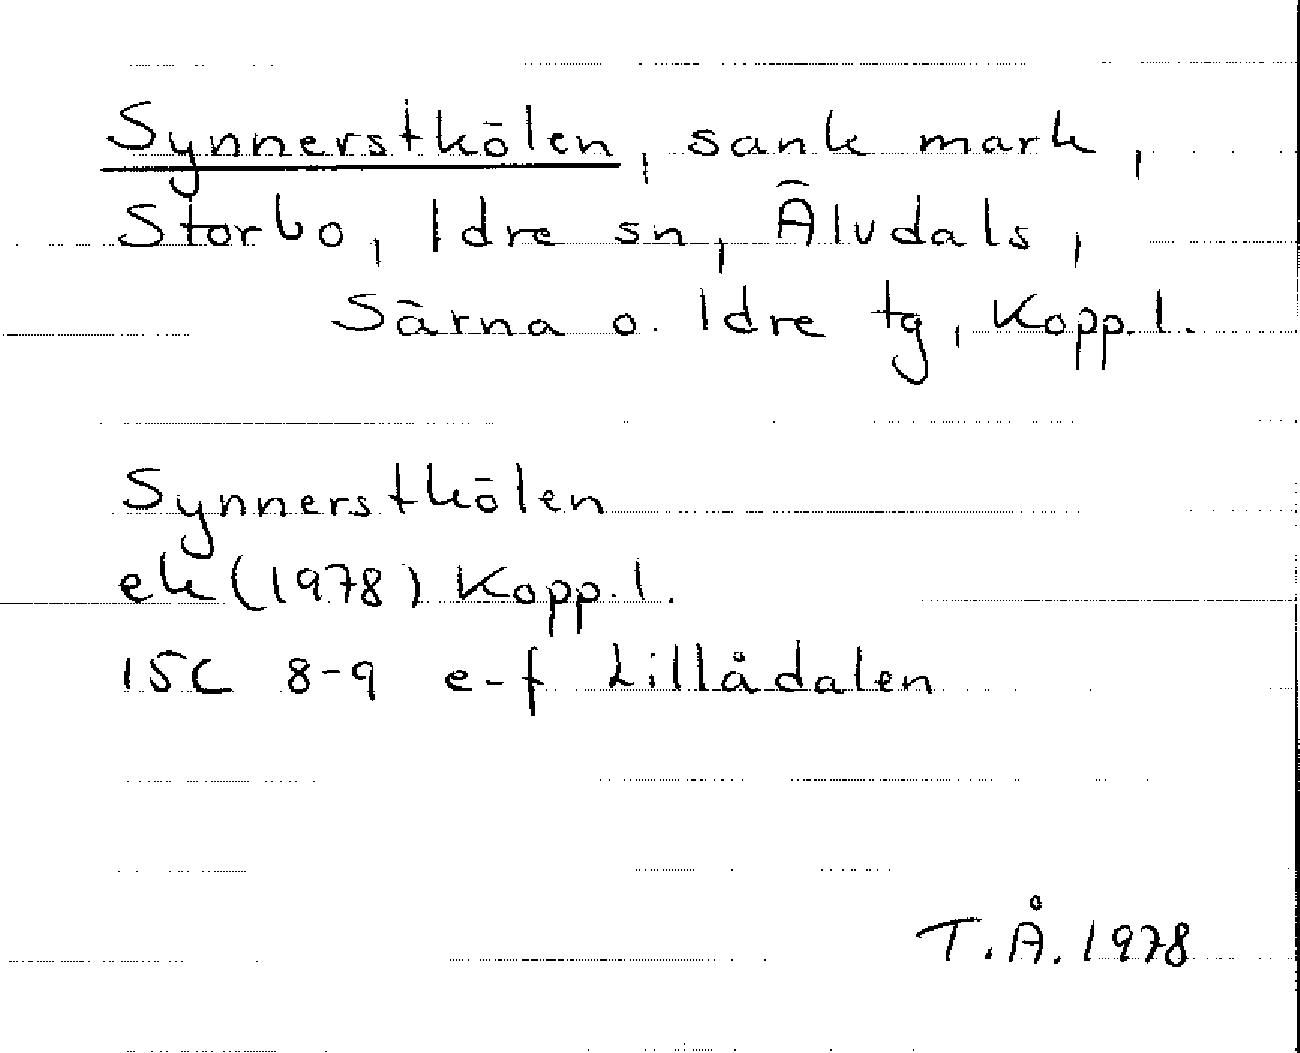 Synnerstkölen, sank mark,
Storbo, Idre sn, Älvdals,
Särna o. Idre tg, Kopp.l.
Synnerstkölen
ek (1978) Kopp.l.
15C 8-9 e-f Lillådalen
T.Å. 1978